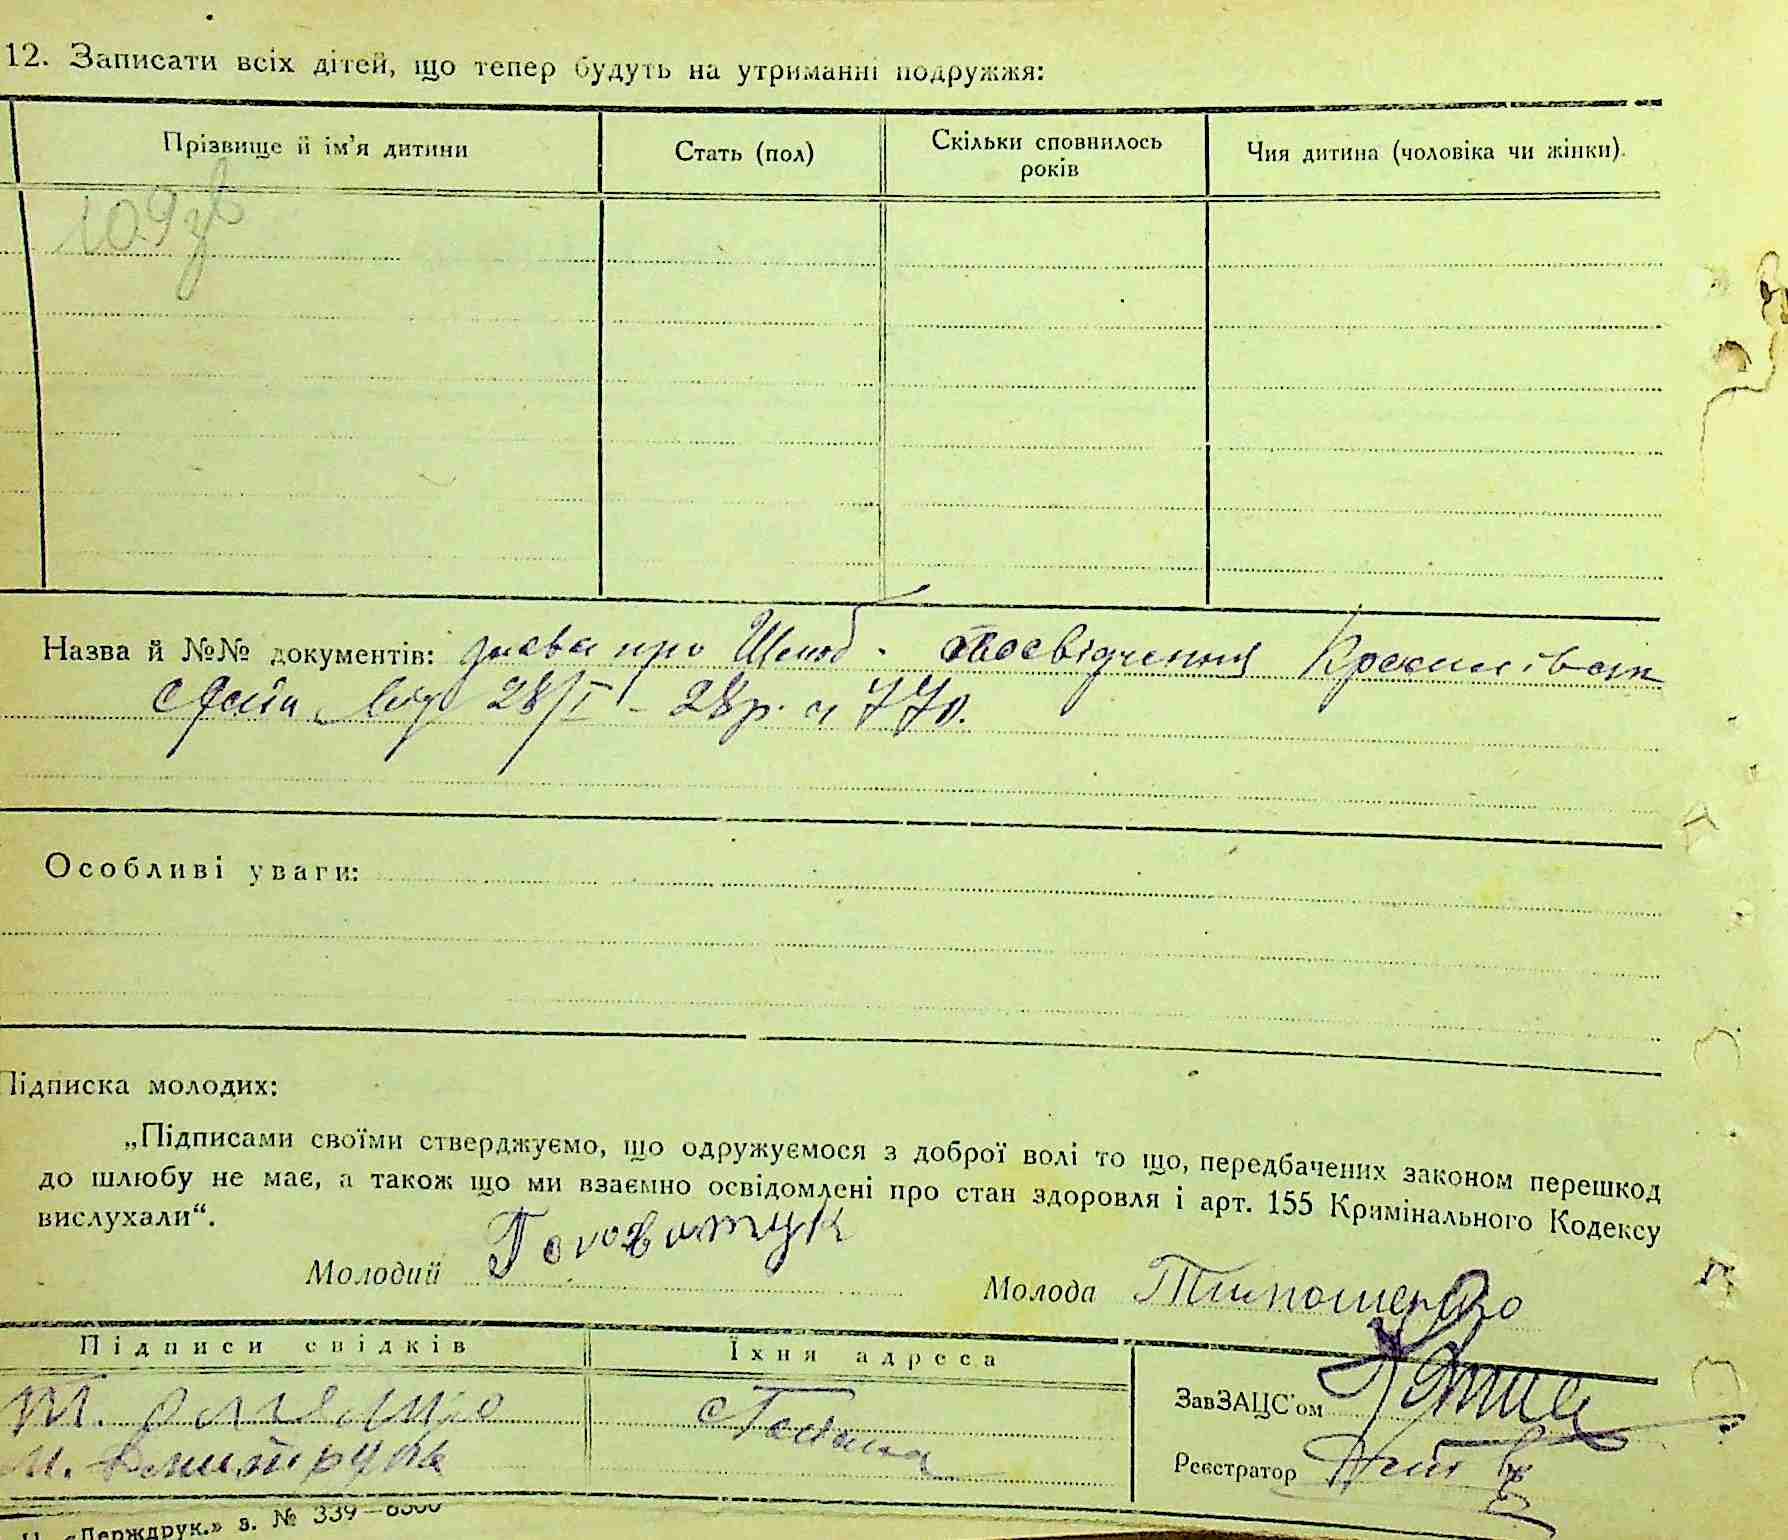 12. Записати всіх дітей, що тепер будуть на утриманні подружжя:
Прізвище й ім'я дитини
Стать (пол)
Скільки сповнилось
років
Чия дитина (чоловіка чи жінки).
109 зв
Назва й №№ документів: заява про Шлюб. Посвідчення
від 28/I - 28 р. ч 770.
Особливі уваги:
Підписка молодих:
„Підписами своїми стверджуємо, що одружуємося з доброї волі то що, передбачених законом перешкод
до шлюбу не має, а також що ми взаємно освідомлені про стан здоровля і арт. 155 Кримінального Кодексу
вислухали“.
Молодий Головатук
Молода Тимошенко
Підписи свідків
Їхня адреса
ЗавЗАЦС'ом
М. Дмитрук
Реєстратор
«Держдрук.» з. № 339—6500